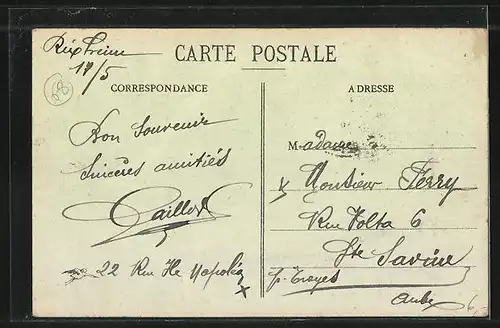 Rixheim
CARTE POSTALE
19/5
68
CORRESPONDANCE
ADRESSE
Bon Souvenir
Sincères amitiés
Caillot
22 Rue Ile Napoléon
Madame
x Monsieur Ferry
Rue Volta 6
Ste Savine
p. Troyes
Aube